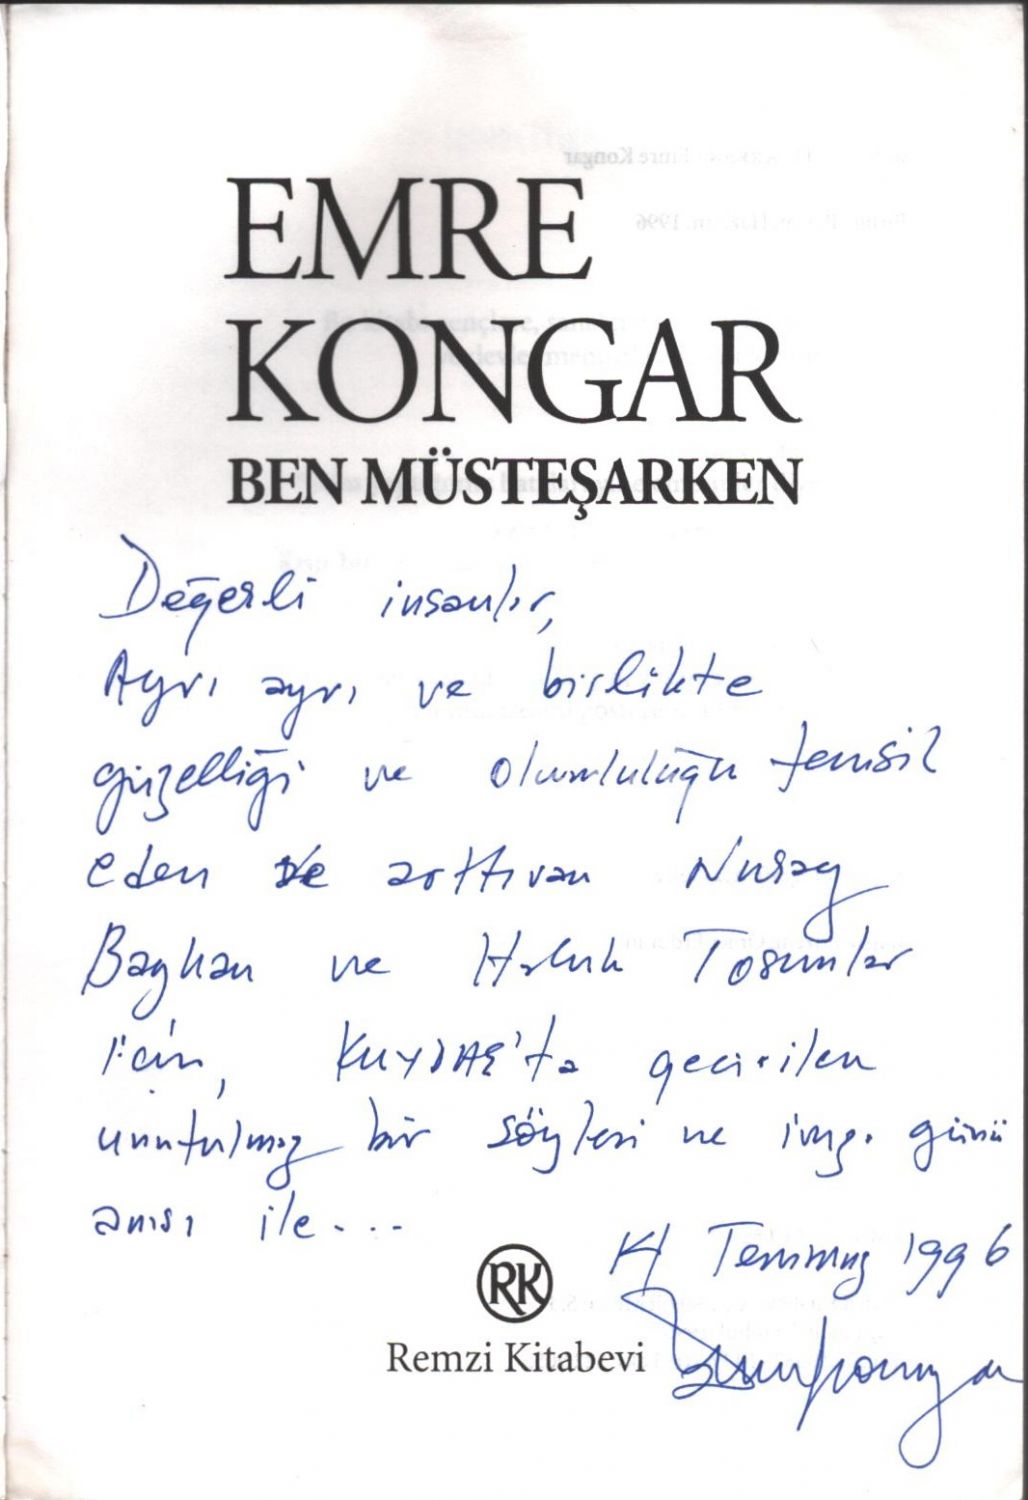 EMRE
KONGAR
BEN MÜSTEŞARKEN
Değerli insanlar,
Ayrı ayrı ve birlikte
güzelliği ve olumluluğu temsil
eden ve arttıran Nuray
Bayhan ve Haluk Tosunlar
için, KUYDAŞ'ta geçirilen
unutulmaz bir söyleşi ve imza günü
anısı ile...
Temmuz 1996
RK
Remzi Kitabevi